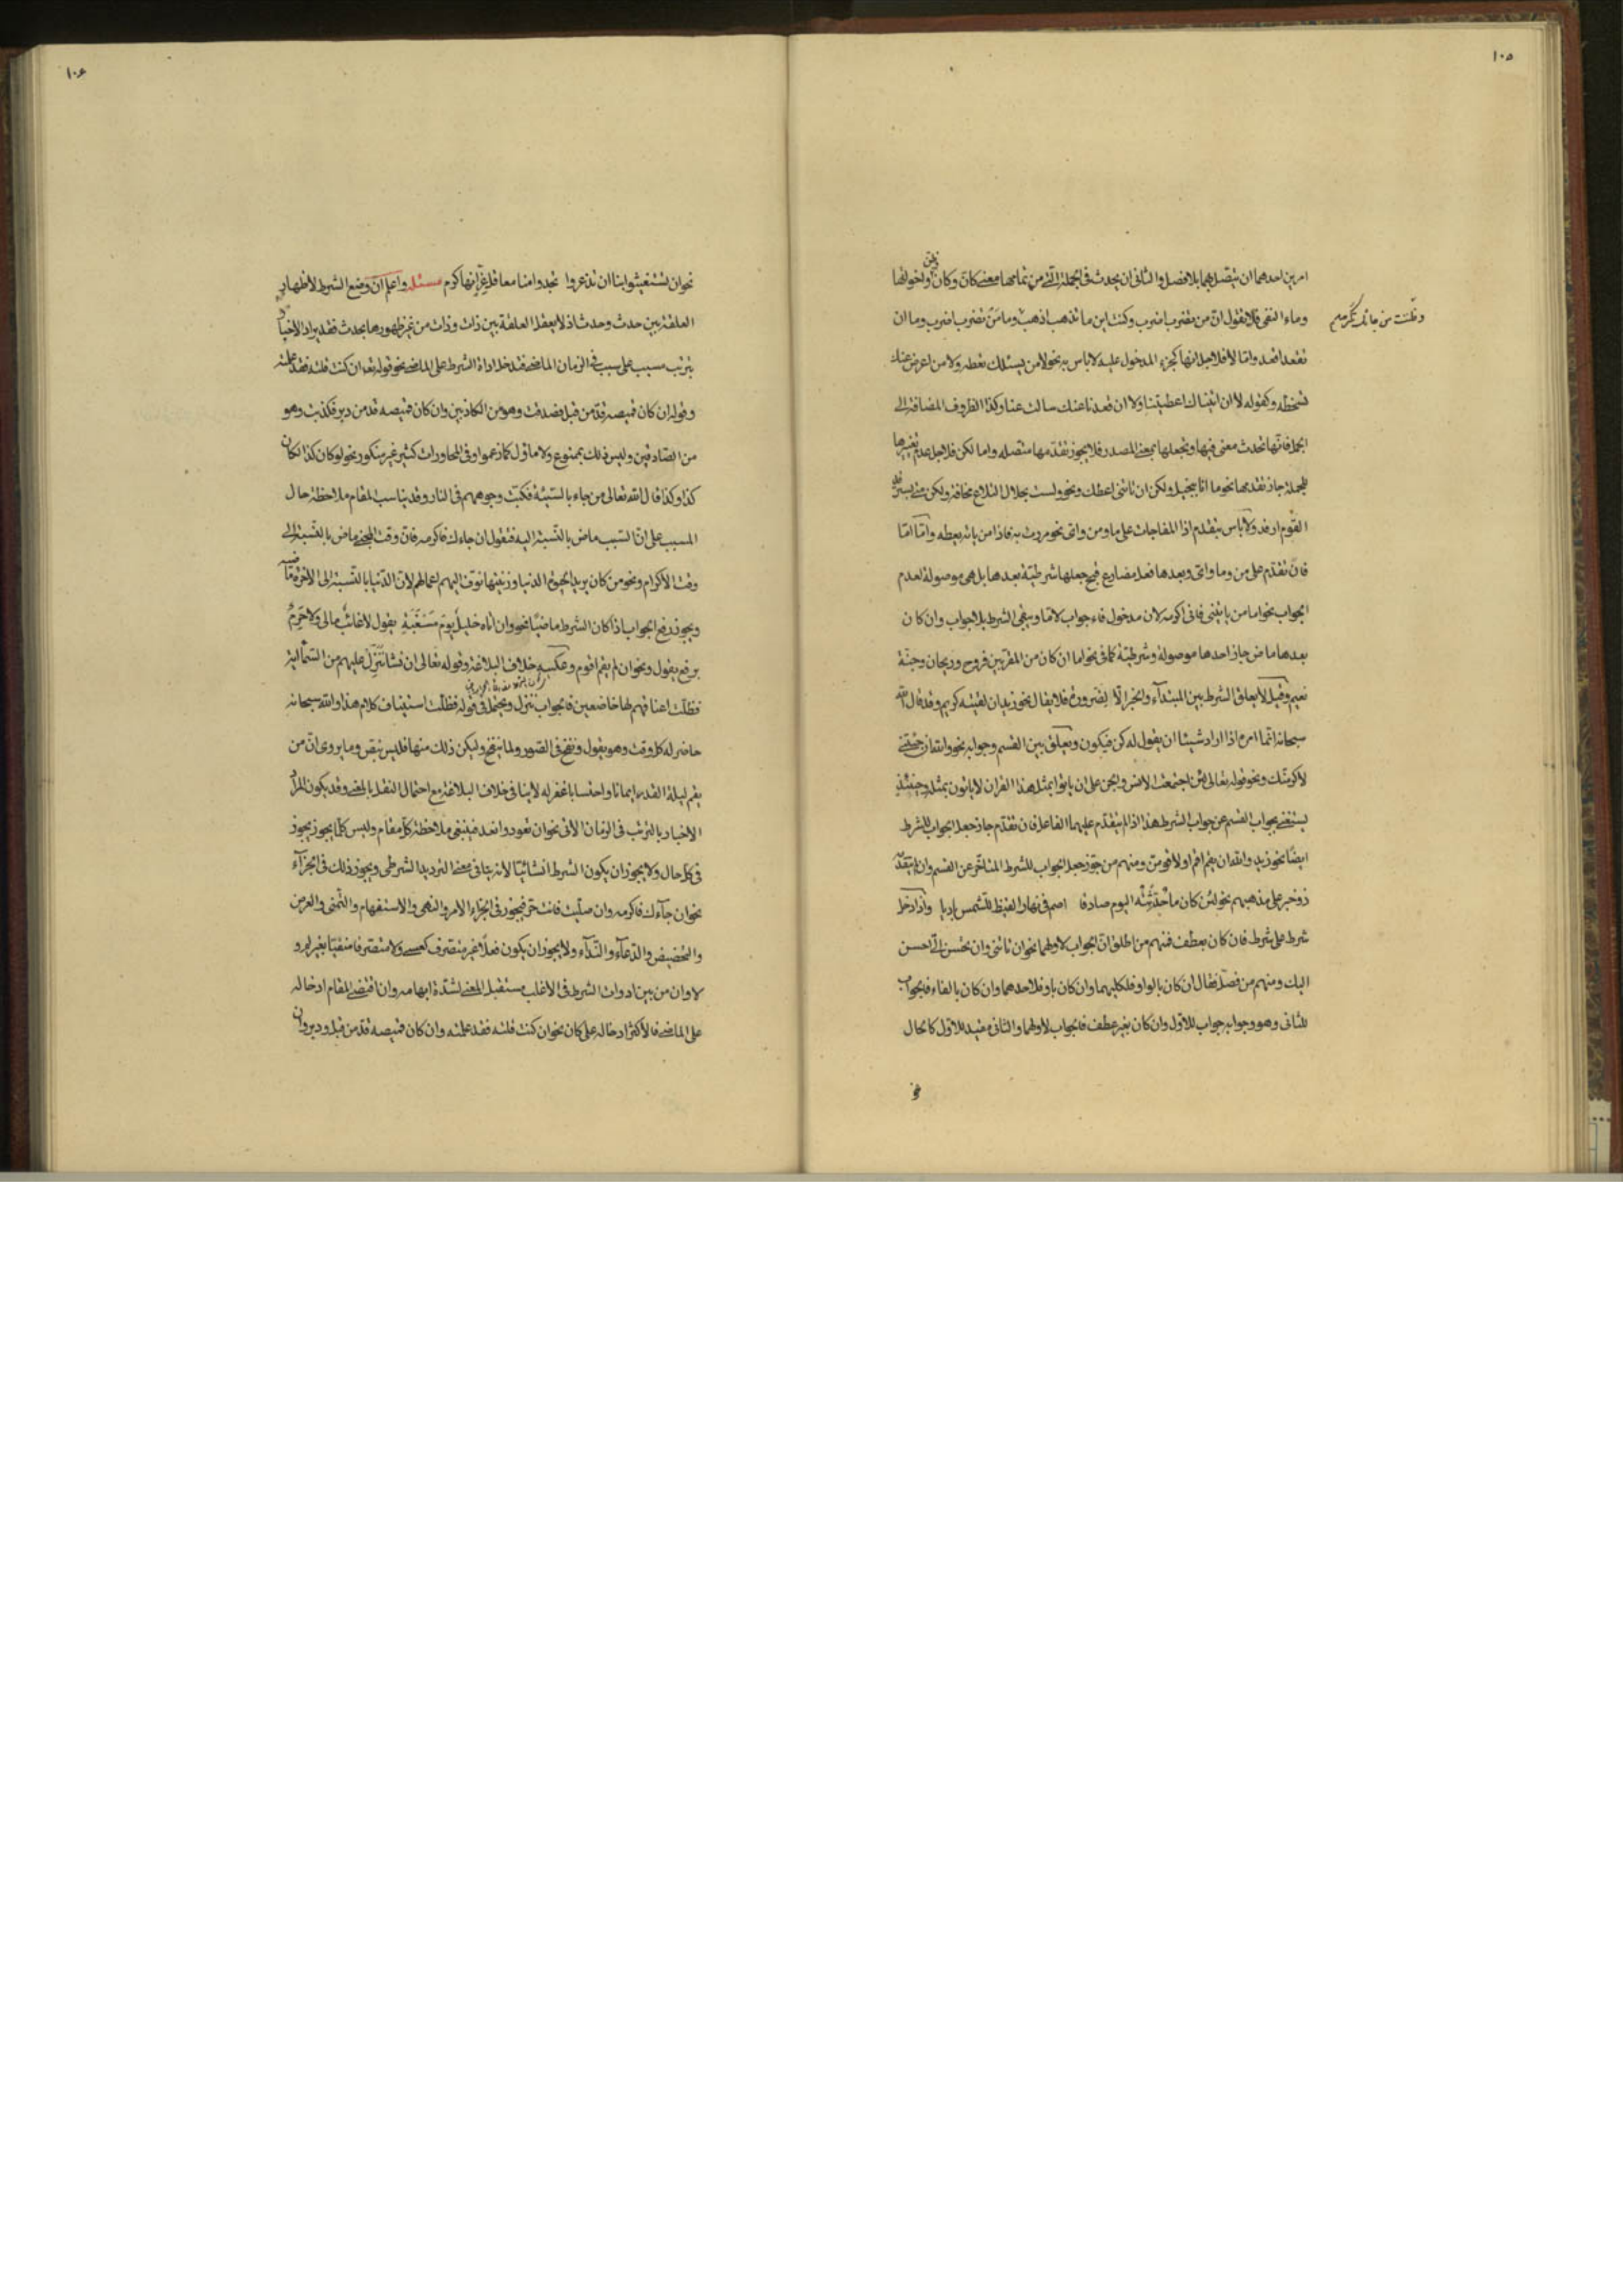 ١٠٥
امرين احدهما ان يتصل بهما بلا فصل والثاني ان يحدث في الجملة التي من تمامها معنى كان وكان وظن واخواتها
وظننت من جائك تكرمه
وماء النفي فلا تقول ان من يضرب اضرب وكنت اين ما تذهب اذهب وما من يضرب اضرب وما ان
تقعد اقعد واما لا فلاجل انها كجزء المدخول عليه لا باس به نحو لا من يسئلك تعطه ولا من اعرض عنك
تسخطه وكقوله لا ان اتيناك اعطيتنا ولا ان قعدنا عنك سالت عنا وكذا الظروف المضافة الى
الجمل فانها تحدث معنى فيها وتجعلها بمعنى المصدر فلا يجوز تقدمها متصله واما لكن فلاجل عدم تغييرها
للجملة جاز تقدمها نحو ما انا ببخيل ولكن ان تاتني اعطك ونحو ولست بحلال التلاع مخافة ولكن متى يسترفد
القوم ارفد ولا باس بتقدم اذا المفاجات على ما ومن واي نحو مررت به فاذا من ياته يعطه واما اما
فان تقدم على من وما واي وبعدها فعل مضارع قبح جعلها شرطية بعدها بل هي موصولة لعدم
الجواب نحو اما من ياتيني فاني اكرمه لان مدخول فاء جواب لاما ويبقى الشرط بلا جواب وان كان
بعدها ماض جاز احدها موصولة وشرطية كما في نحو اما ان كان من المقربين فروح وريحان وجنة
نعيم وقيل لا يعلق الشرط بين المبتداء والخبر الا لضرورة فلا يقال نحو زيد ان لقيته كريم وقد قال الله
سبحانه انما امره اذا اراد شيئا ان يقول له كن فيكون ويعلق بين القسم وجوابه نحو والله ان جئتني
لاكرمنك ونحو قوله تعالى لئن اجتمعت الانس والجن على ان ياتوا بمثل هذا القران لا ياتون بمثله وحينئذ
يستغنى بجواب القسم عن جواب الشرط هذا اذا لم يتقدم عليهما الفاعل فان تقدم جاز جعل الجواب للشرط
ايضا نحو زيد والله ان يقم اقم او لاقومن ومنهم من جوز جعل الجواب للشرط المتاخر عن القسم وان لم يتقدمه
ذو خبر على مذهبهم نحو لئن كان ما حدثته اليوم صادقا اصم في نهار القيظ للشمس باديا واذا دخل
شرط على شرط فان كان بعطف فمنهم من اطلق ان الجواب لاولهما نحو ان تاتني وان تحسن الي احسن
اليك ومنهم من فصل فقال ان كان بالواو فلكليهما وان كان باو فلاحدهما وان كان بالفاء فالجواب
للثاني وهو وجوابه جواب للاول وان كان بغير عطف فالجواب لاولهما والثاني مقيد للاول كالحال
نحو
١٠٦
نحو ان تستغيثوا بنا ان تذعروا تجدوا منا معاقل عز زانها كرم مسئلة واعلم ان وضع الشرط لاظهار
العلقة بين حدث وحدث اذ لا يعقد العلقة بين ذات وذات من غير ظهورها بحدث فقد يراد الاخبار
بترتب مسبب على سبب في الزمان الماضي فتدخل اداة الشرط على الماضي نحو قوله تعه ان كنت قلته فقد علمته
وقوله ان كان قميصه قد من قبل فصدقت وهو من الكاذبين وان كان قميصه قد من دبر فكذبت وهو
من الصادقين وليس ذلك بممنوع ولا ماؤل كما زعموا وفي المحاورات كثير غير منكور نحو لو كان كذا لكان
كذا وكذا قال الله تعالى من جاء بالسيئة فكبت وجوههم في النار وقد يناسب المقام ملاحظة حال
المسبب على ان السبب ماض بالنسبة اليه فتقول ان جاءك فاكرمه فان وقت المجيء ماض بالنسبة الى
وقت الاكرام ونحو من كان يريد الحيوة الدنيا وزينتها نوف اليهم اعمالهم لان الدنيا بالنسبة الى الاخرة ماضية
ويجوز رفع الجواب اذا كان الشرط ماضيا نحو وان اتاه خليل يوم مسغبة يقول لا غائب مالي ولا حرم
برفع يقول ونحو ان لم يقم اقوم وعكسه خلاف البلاغة وقوله تعالى ان نشا ننزل عليهم من السماء اية
فظلت اعناقهم لها خاضعين فالجواب ننزل ويحتمل في قوله فظلت استيناف كلام هذا والله سبحانه
حاضر له كل وقت وهو يقول ونفخ في الصور ولما ينفخ وليكن ذلك منها فليس بنقص وما يروى ان من
يقم ليلة القدر ايمانا واحتسابا غفر له لا ينافي خلاف البلاغة مع احتمال النقل بالمعنى وقد يكون المراد
الاخبار بالترتب في الزمان الاتي نحو ان تعود واتعد فينبغي ملاحظة كل مقام وليس كلما يجوز يجوز
في كل حال ولا يجوز ان يكون الشرط انشائيا لانه ينافي معنى الترديد الشرطي ويجوز ذلك في الجزاء
نحو ان جاءك فاكرمه وان صليت فانت حر فيجوز في الجزاء الامر والنهي والاستفهام والتمني والعرض
والتحضيض والدعاء والنداء ولا يجوز ان يكون فعلا غير متصرف كعسى ولا متصرفا منفيا بغير لم و
لا وان من بين ادوات الشرط في الاغلب مستقبل المعنى لشدة ابهامه وان اقتضى المقام ادخاله
على الماضي فالاكثر ادخاله على كان نحو ان كنت قلته فقد علمته وان كان قميصه قد من قبل ودبر وان